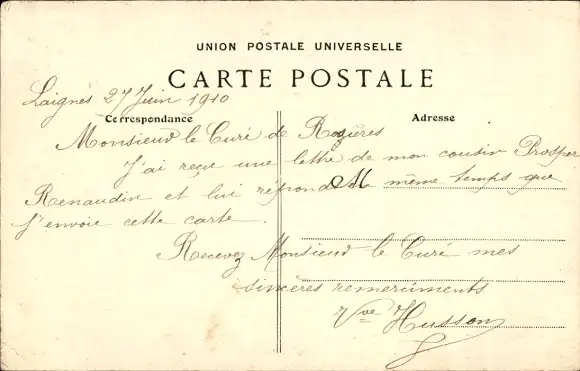 UNION POSTALE UNIVERSELLE
CARTE POSTALE
Laignes 27 Juin 1910
Correspondance
Adresse
Monsieur le Curé de Rozières
J'ai reçu une lettre de mon cousin Prosper
Renaudin et lui réponds M même temps que
j'envoie cette carte.
Recevez Monsieur le Curé mes
sincères remerciments
Vve Husson